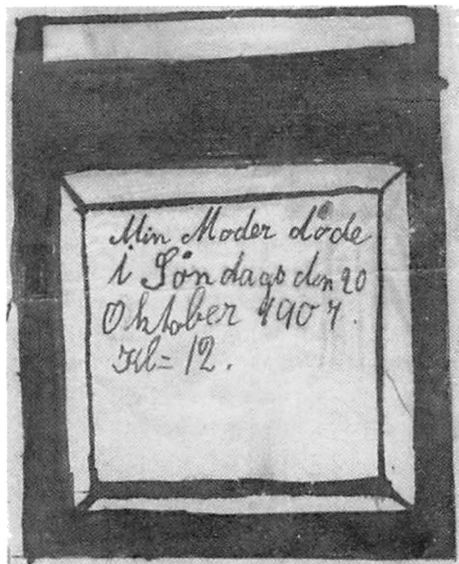 Min Moder døde
i Søndags den 20
Oktober 1907.
Kl= 12.